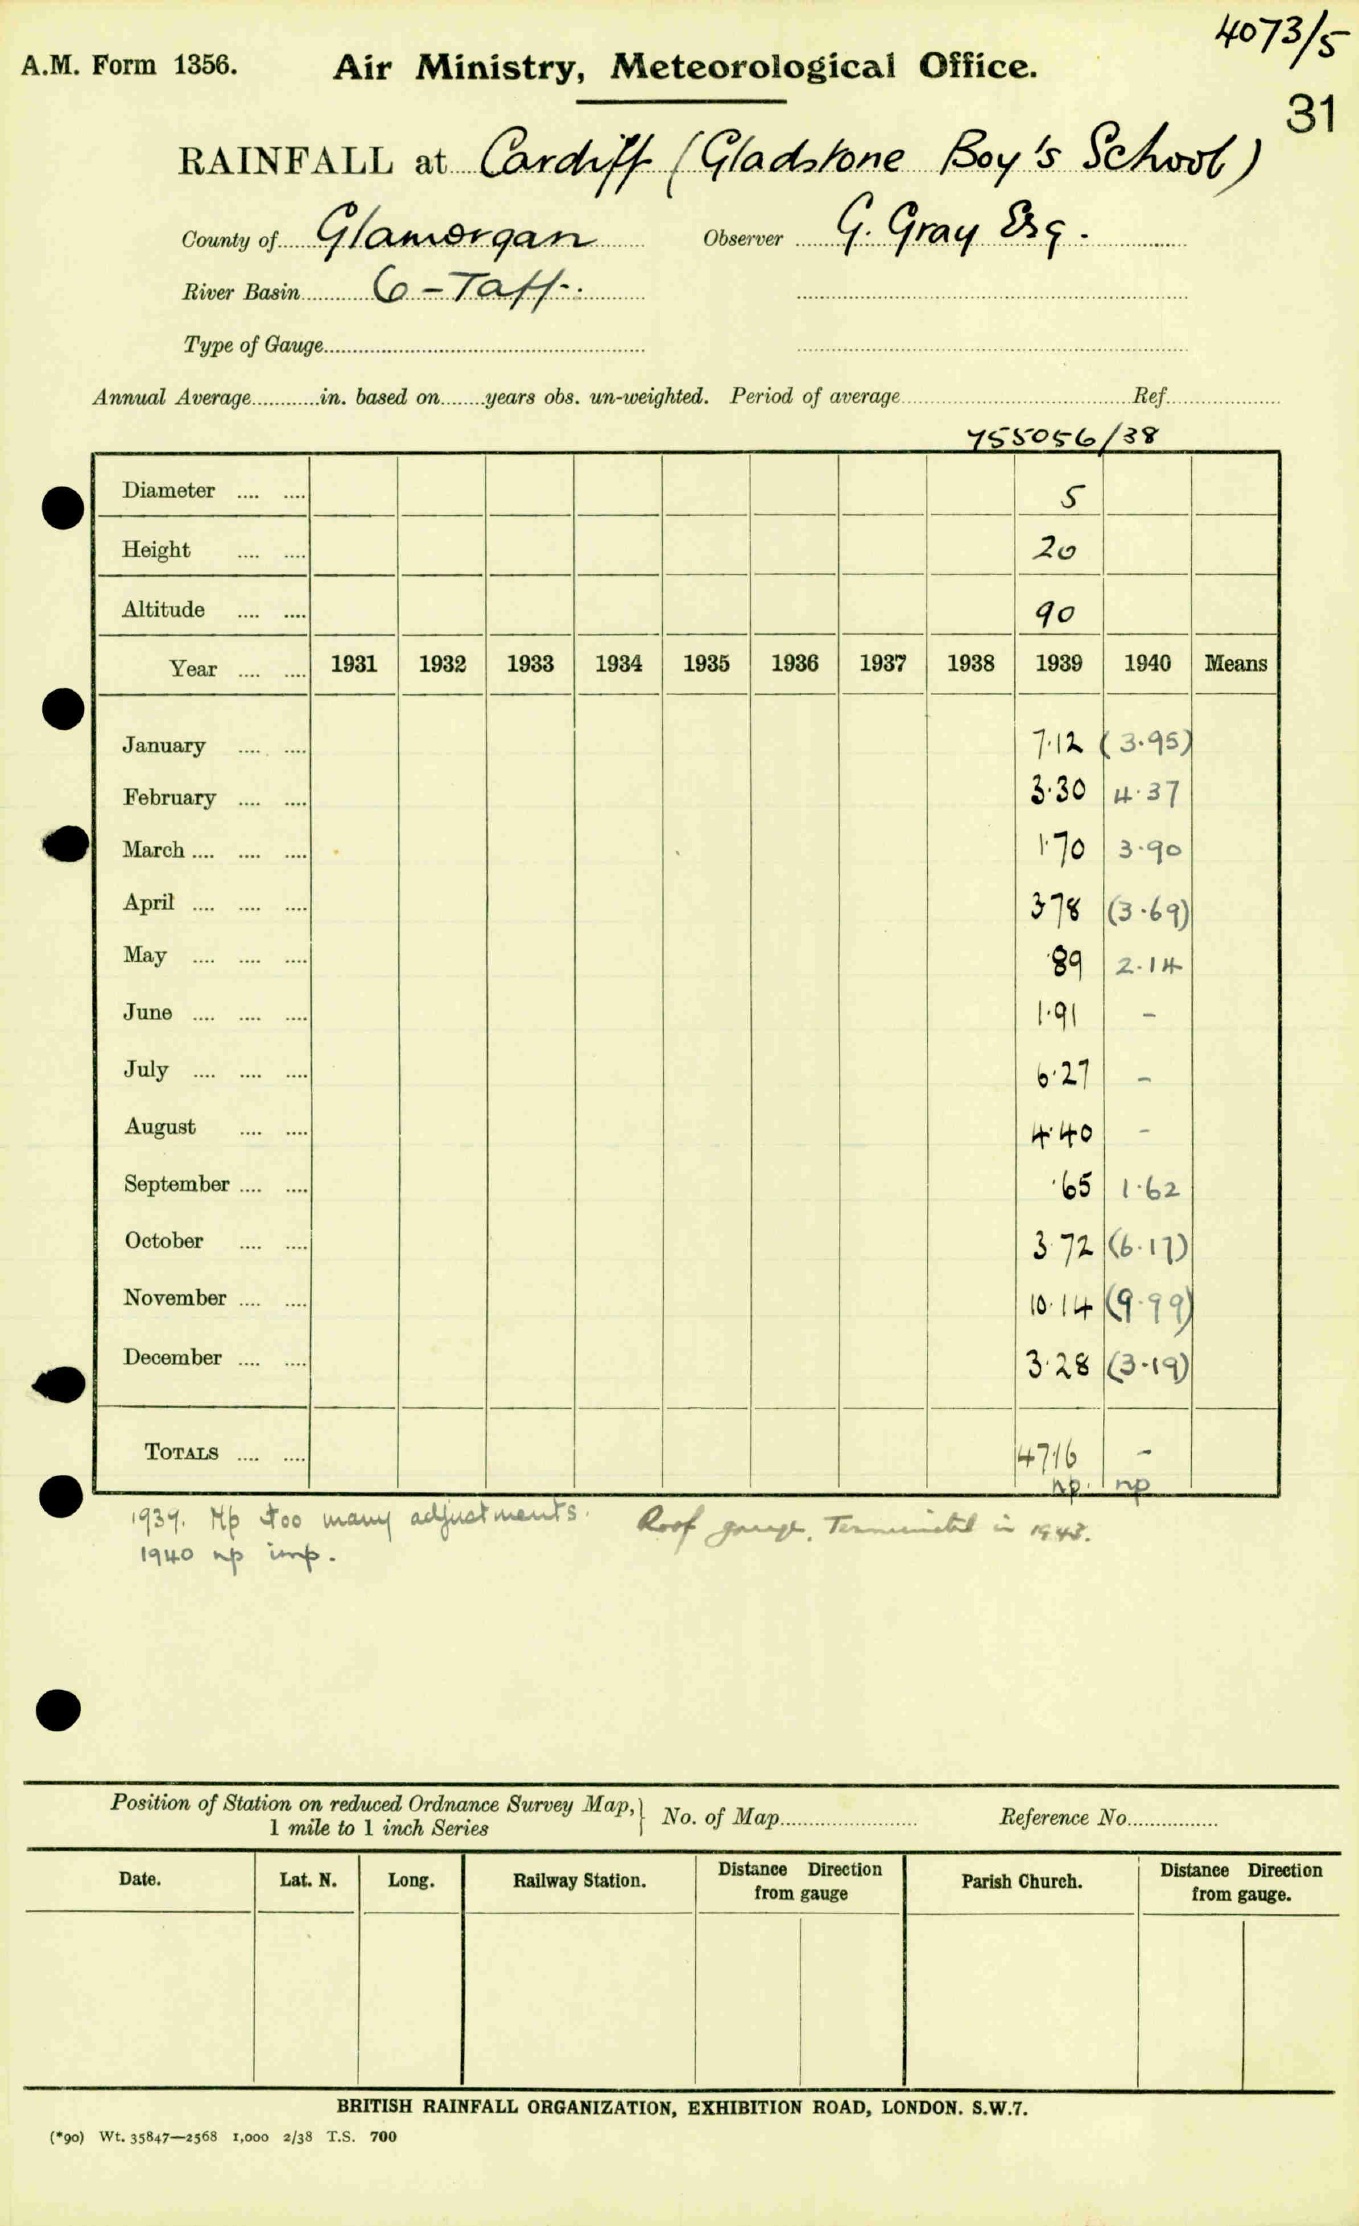 4073/5
A.M. Form 1356. Air Ministry, Meteorological Office.
31
RAINFALL at Cardiff (Gladstone Boy's School)
County of Glamorgan Observer G. Gray Esq.
River Basin 6 - Taff.
Type of Gauge
Annual Average in. based on years obs. un-weighted. Period of average Ref.
755056/38
Diameter 5
Height 20
Altitude 90
Year 1931 1932 1933 1934 1935 1936 1937 1938 1939 1940 Means
January 7.12 (3.95)
February 3.30 4.37
March 1.70 3.90
April 3.78 (3.69)
May .89 2.14
June 1.91 -
July 6.27 -
August 4.40 -
September .65 1.62
October 3.72 (6.17)
November 10.14 (9.99)
December 3.28 (3.19)
TOTALS 47.16 -
np. np
1939. Np too many adjustments. Roof gauge. Terminated in 1943.
1940 np imp.
Position of Station on reduced Ordnance Survey Map, } No. of Map Reference No.
1 mile to 1 inch Series
Date. Lat. N. Long. Railway Station. Distance Direction from gauge Parish Church. Distance Direction from gauge.
BRITISH RAINFALL ORGANIZATION, EXHIBITION ROAD, LONDON. S.W.7.
(*90) Wt. 35847—2568 1,000 2/38 T.S. 700